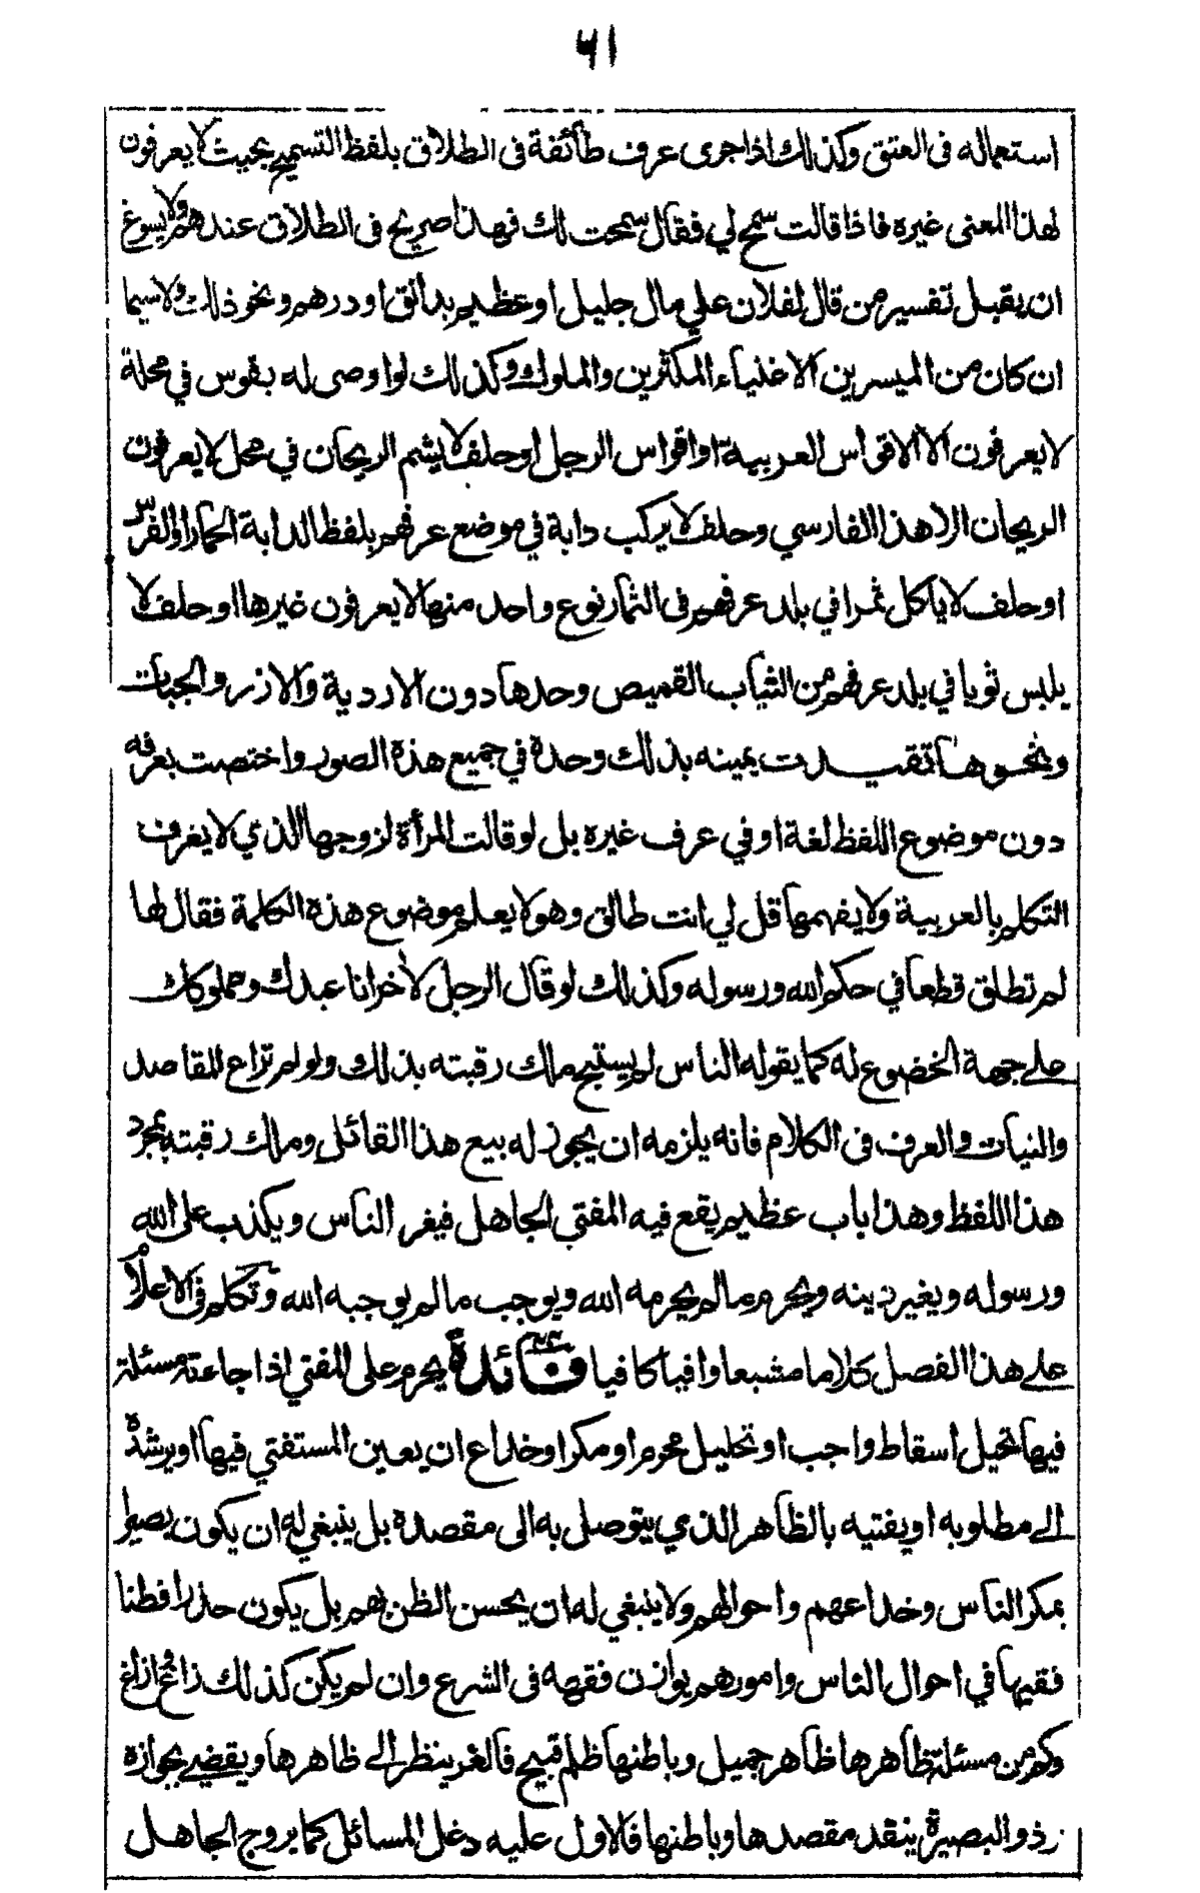 ٤١
استعماله فى العتق وكذلك اذا جرى عرف طائفة فى الطلاق بلفظ التسميح بحيث لا يعرفون
لهذا المعنى غيره فاذا قالت سمح لي فقال سمحت لك فهذا صريح فى الطلاق عندهم ولا يسوغ
ان يقبل تفسير من قال لفلان علي مال جليل او عظيم بدانق او درهم ونحو ذلك ولا سيما
ان كان من الميسرين الاغنياء المكثرين والملوك وكذلك لو اوصى له بقوس في محلة
لا يعرفون الا الاقواس العربية او اقواس الرجل او حلف لا يشم الريحان في محل لا يعرفون
الريحان الا هذا الفارسي وحلف لا يركب دابة في موضع عرفهم بلفظ الدابة الحمار او الفرس
او حلف لا ياكل ثمرا في بلد عرفهم فى الثمار نوع واحد منها لا يعرفون غيرها او حلف لا
يلبس ثوبا في بلد عرفهم من الثياب القميص وحدها دون الاردية والازر والجبات
ونحوها تقيدت يمينه بذلك وحدة في جميع هذه الصور واختصت بعرفه
دون موضوع اللفظ لغة او في عرف غيره بل لو قالت المرأة لزوجها الذي لا يعرف
التكلم بالعربية ولا يفهمها قل لي انت طالق وهو لا يعلم موضوع هذه الكلمة فقال لها
لم تطلق قطعا في حكم الله ورسوله وكذلك لو قال الرجل لأخر انا عبدك ومملوكك
على جهة الخضوع له كما يقوله الناس لم يستبح ملك رقبته بذلك ولو لم تراع المقاصد
والنيات والعرف فى الكلام فانه يلزمه ان يجوز له بيع هذا القائل وملك رقبته بمجرد
هذا اللفظ وهذا باب عظيم يقع فيه المفتي الجاهل فيغر الناس ويكذب على الله
ورسوله ويغير دينه ويحرم ما لم يحرمه الله ويوجب ما لم يوجبه الله وتكلم فى الاعلام
على هذا الفصل كلاما مشبعا وافيا كافيا فائدة يحرم على المفتي اذا جاءته مسئلة
فيها تحيل اسقاط واجب او تحليل محرم او مكرا وخداع ان يعين المستفتي فيها او يرشده
الى مطلوبه او يفتيه بالظاهر الذي يتوصل به الى مقصده بل ينبغي له ان يكون بصيرا
بمكر الناس وخداعهم واحوالهم ولا ينبغي له ان يحسن الظن بهم بل يكون حذرا فطنا
فقيها في احوال الناس وامورهم يوازن فقهه فى الشرع وان لم يكن كذلك زاغ وازاغ
وكم من مسئلة ظاهرها ظاهر جميل وباطنها ظلم قبيح فالغر ينظر الى ظاهرها ويقضي بجوازه
وذو البصيرة ينقد مقصدها وباطنها فالاول عليه دغل المسائل كما يروج الجاهل